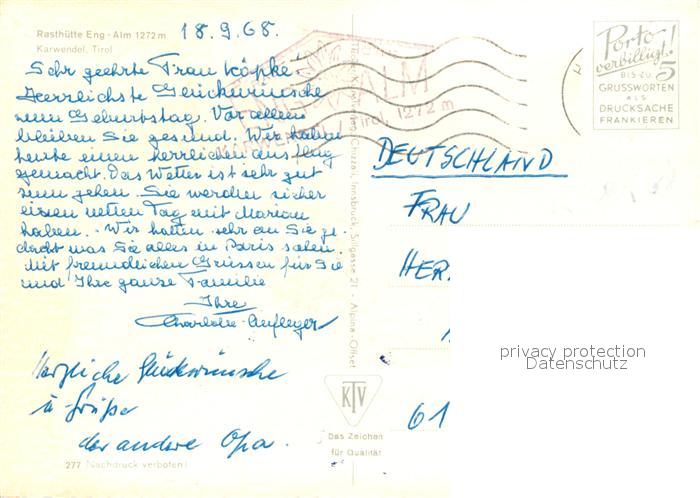 Rasthütte Eng - Alm 1272 m
Karwendel, Tirol
18.9.68.
Sehr geehrte Frau Köpke!
Herrlichste Glückwünsche
zum Geburtstag. Vor allem
bleiben Sie gesund. Wir haben
heute einen herrlichen Ausflug
gemacht. Das Wetter ist sehr gut
zum gehen. Sie werden sicher
einen netten Tag mit Marion
haben. Wir hatten sehr an Sie ge-
dacht was Sie alles in Paris sahen.
Mit freundlichen Grüssen für Sie
und Ihre ganze Familie
Ihre
Charlotte
Herzliche Glückwünsche
u. Grüße
der andere Opa.
277 Nachdruck verboten!
ALM
Tirol, 1272 m
Innsbruck, Sillgasse 21 - Alpina-Offset
KTV
Das Zeichen
für Qualität
Porto
verbilligt!
5
BIS ZU
GRUSSWORTEN
ALS
DRUCKSACHE
FRANKIEREN
DEUTSCHLAND
FRAU
HER.
61
privacy protection
Datenschutz